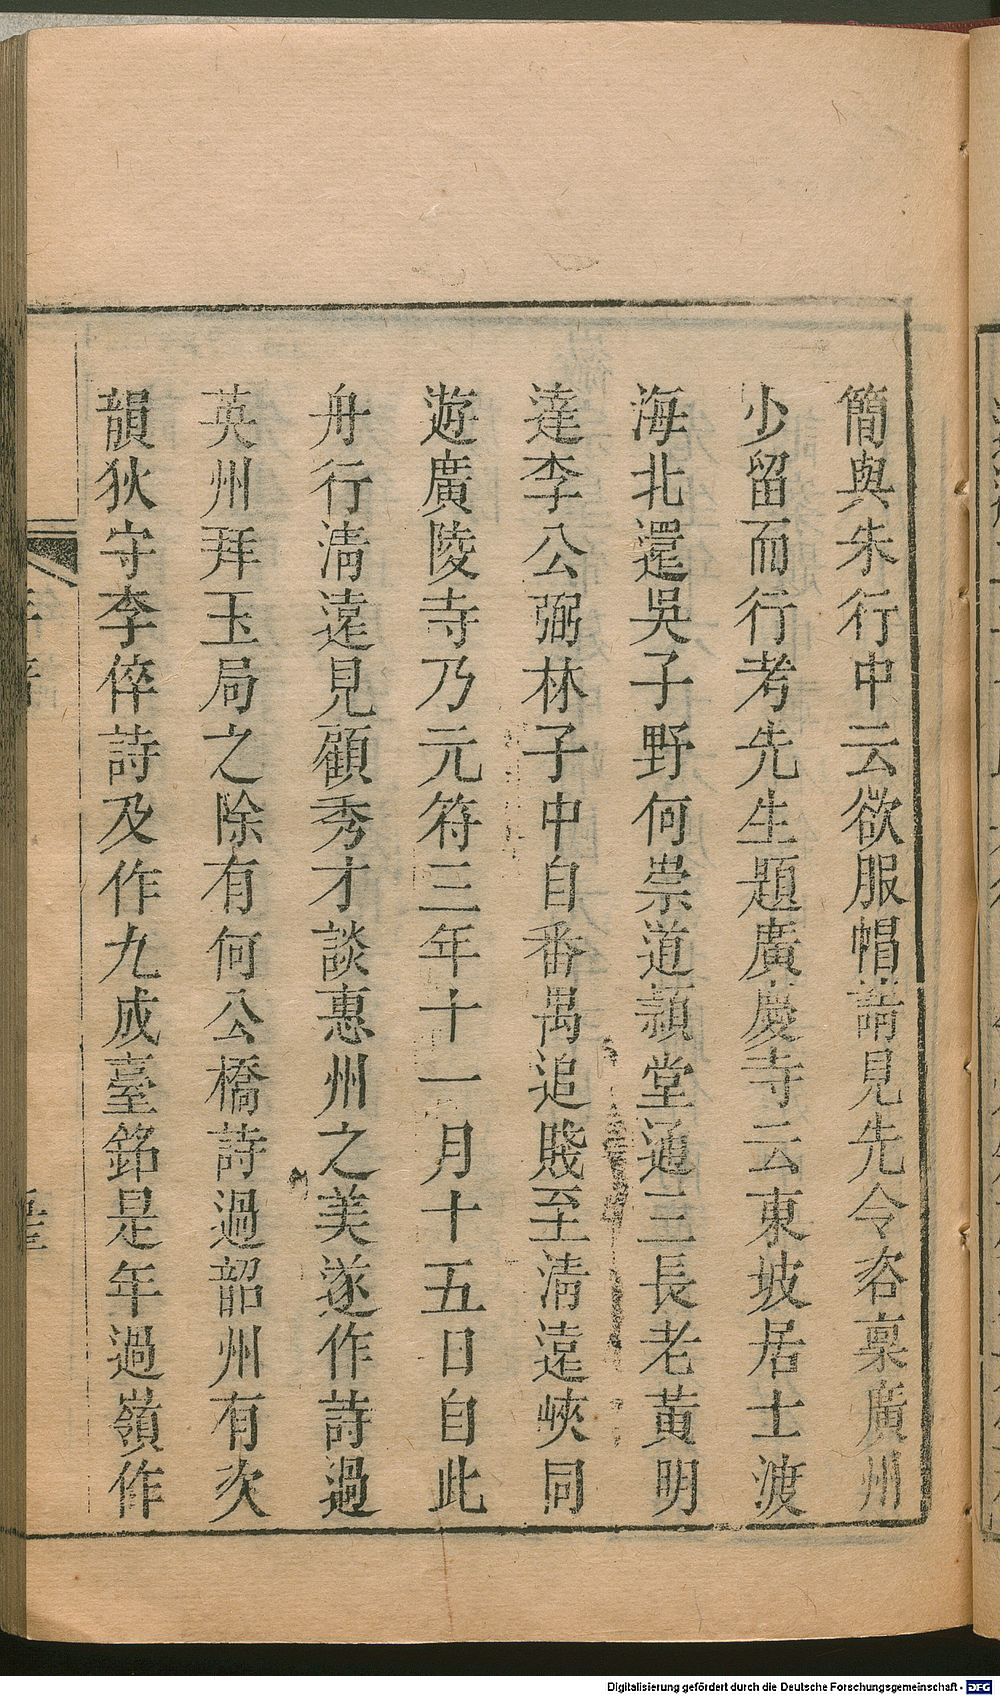 簡與朱行中云欲服帽請見先令咨稟廣州
少留而行考先生題廣慶寺云東坡居士渡
海北還吳子野何崇道頴堂通三長老黃明
達李公弼林子中自番禺追餞至清遠峽同
遊廣陵寺乃元符三年十一月十五日自此
舟行清遠見顧秀才談惠州之美遂作詩過
英州拜玉局之除有何公橋詩過韶州有次
韻狄守李倅詩及作九成臺銘是年過嶺作
Digitalisierung gefördert durch die Deutsche Forschungsgemeinschaft - DFG